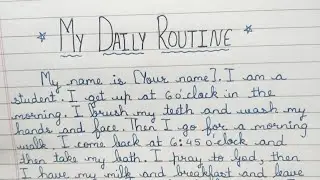 * My Daily Routine *
My name is [Your name]. I am a
student. I get up at 6 o'clock in the
morning. I brush my teeth and wash my
hands and face. Then I go for a morning
walk. I come back at 6:45 o'clock and
then take my bath. I pray to God, then
I have my milk and breakfast and leave